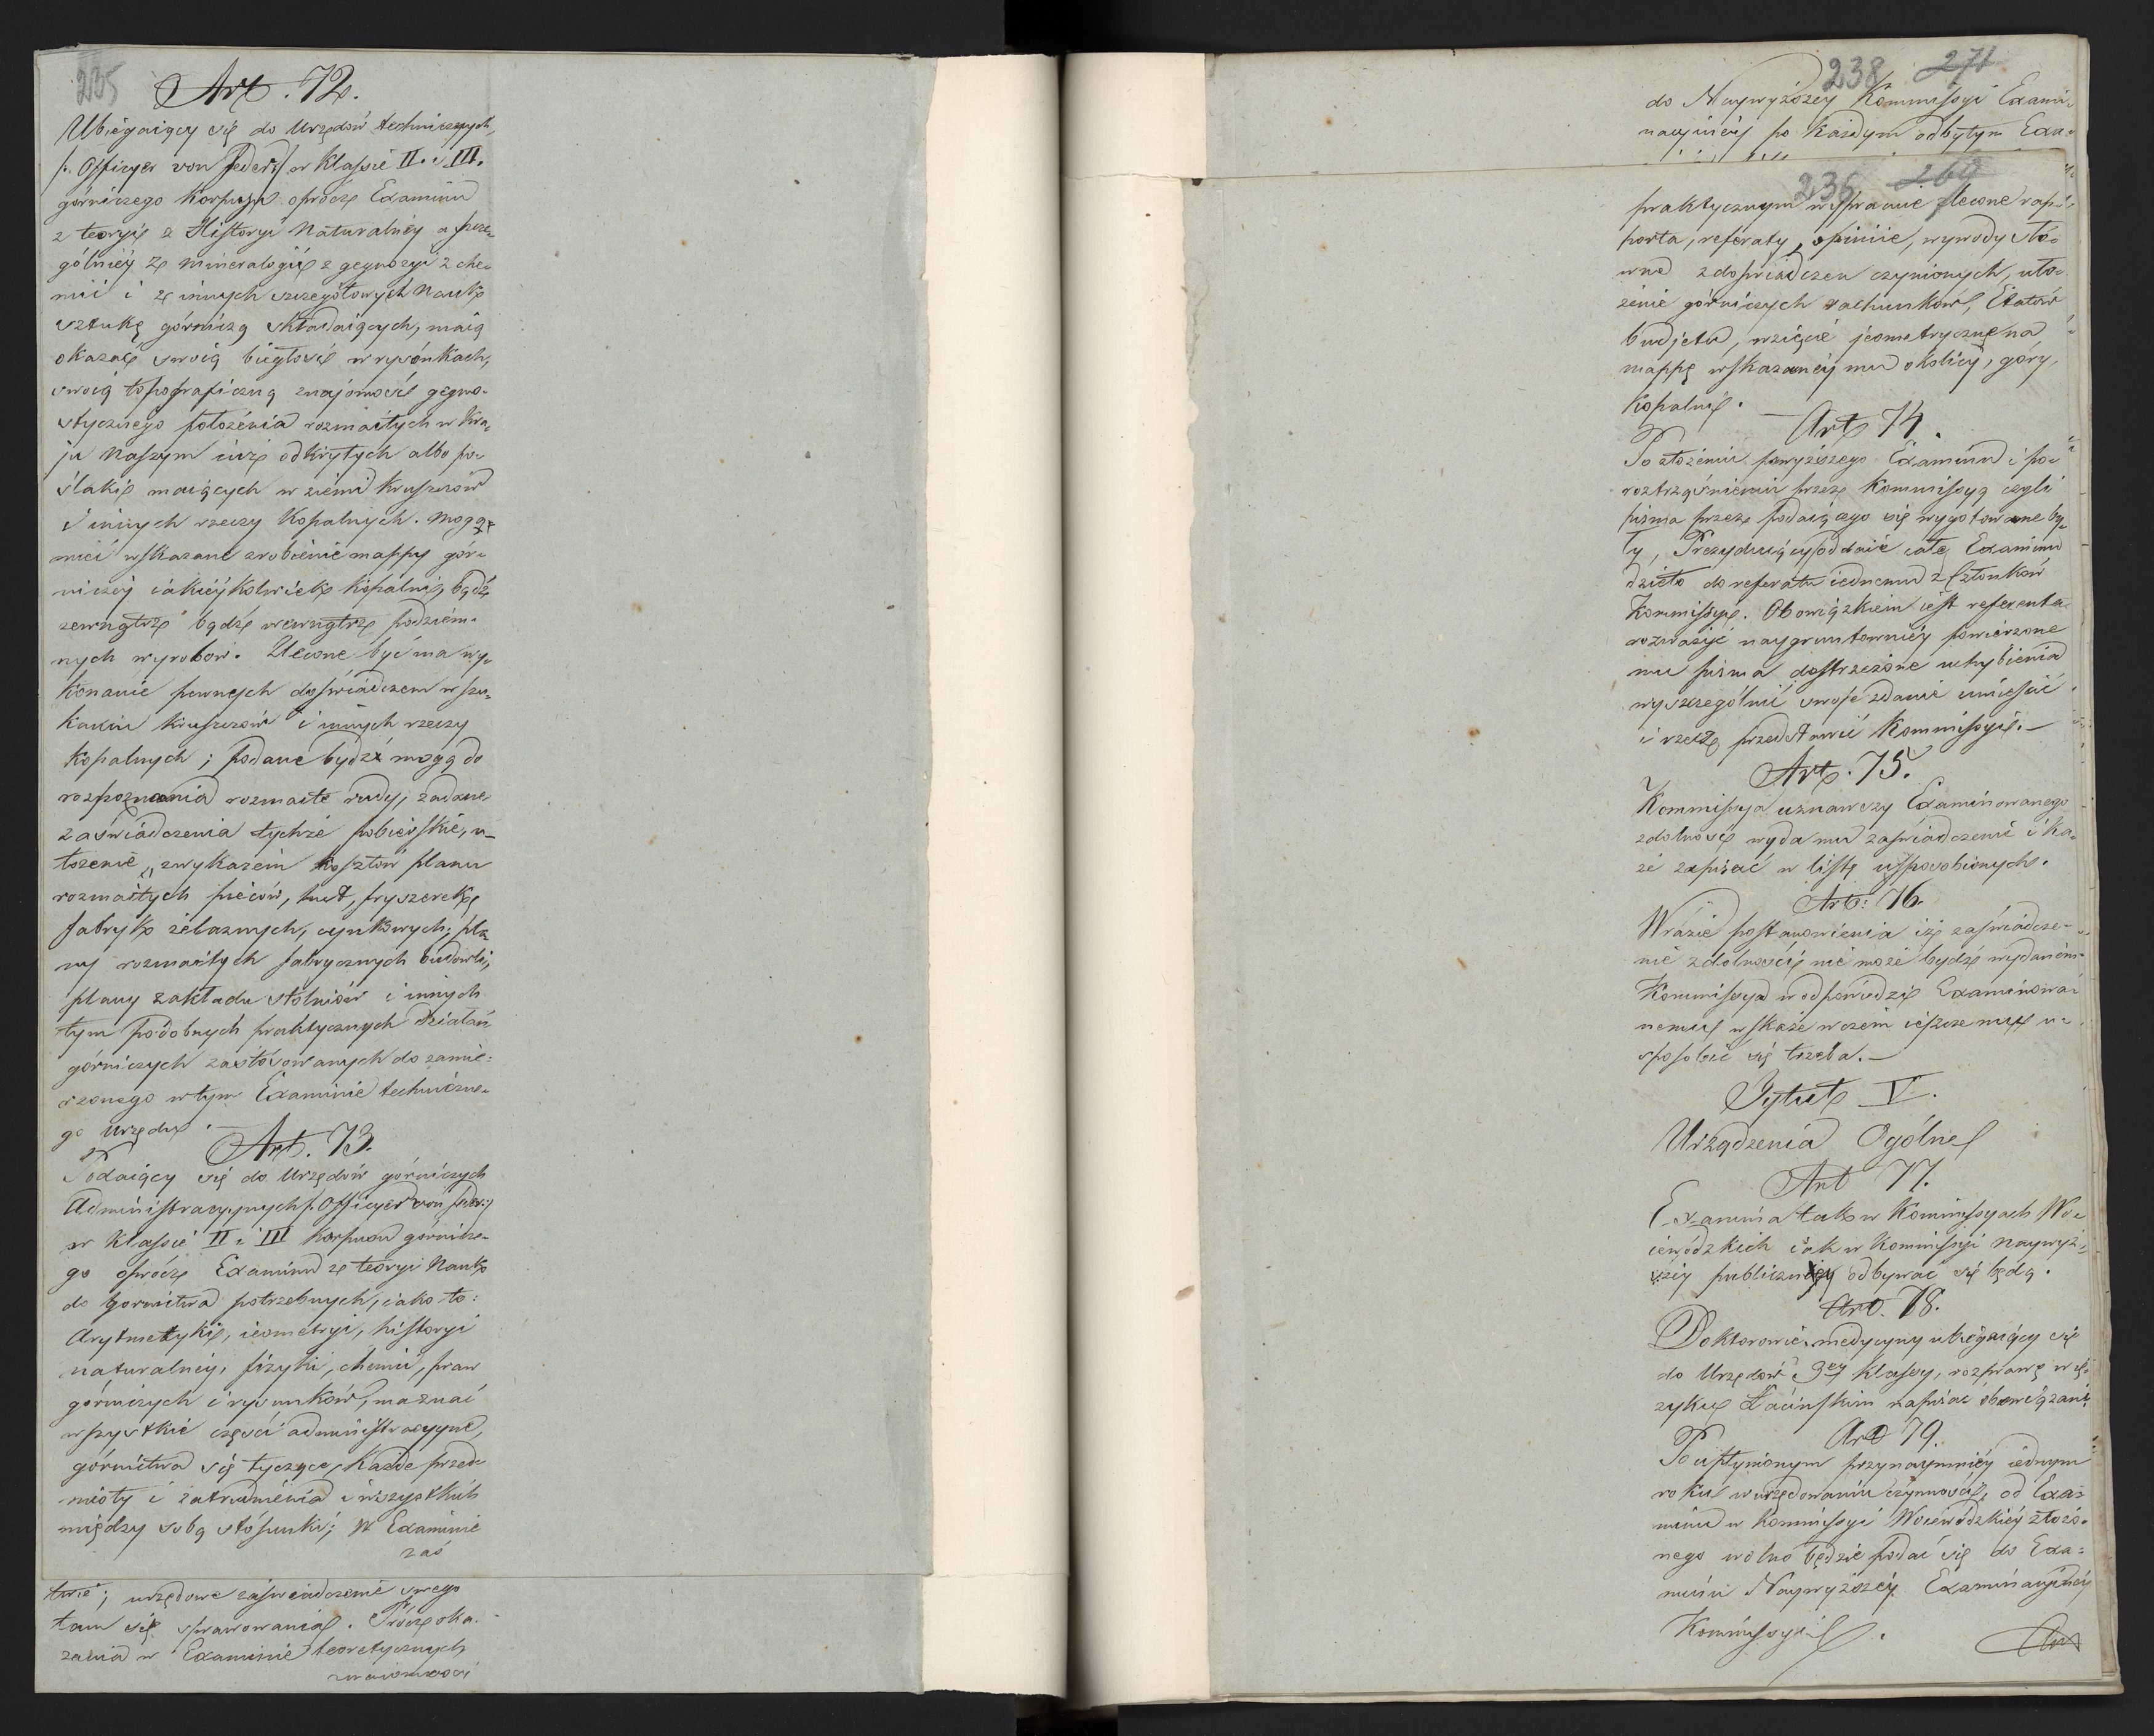 235
Art. 72.
Ubiegaiący się do Urzędów technicznych
/: Officyer von Feder :/ w Klassie II. i III.
górniczego Korpusu oprócz Examinu
z teoryi z Historyi Naturalnéy a szcze-
gólniéy z mineralogii z gegnozyi z che-
mii i z innych szczegółowych Nauk
sztukę górniczą składaiących, maią
okazać swoią biegłość w rysónkach,
swoią topograficzną znajomość gegno-
stycznego położenia rozmaitych w Kra-
ju Naszym iuż odkrytych albo po-
ślaki maiących w ziemi Kruszców
i innych rzeczy Kopalnych. Mogą
mieć wskazane zrobienie mappy gór-
niczéy iakiéykolwiek kopalni, bądź
zewnątrz bądź wewnątrz podziem-
nych wyrobow. Zlecone być ma wy-
konanie pewnych doświadczeń w szu-
kaniu Kruszców i innych rzeczy
Kopalnych; podane bydź mogą do
rozpoznania rozmaite rudy, zadane
zaświadczenia tychże probierskie, u-
łożenie, z wykazem kosztów planu
rozmaitych pieców, hut, fryszerek
fabryk żelaznych, cynkowych; pla
ny rozmaitych fabrycznych budowli,
plany zakładu stolniów i innych
tym podobnych praktycznych działań
górniczych zastósowanych do zamie-
rzonego w tym Examinie techniczne-
go Urzędu.
Art. 73.
Podaiący się do Urzędów górniczych
Administracyynych /: Officyer von feder :/
w Klassie II i III Korpusu górnicze-
go oprócz Examinu z teoryi Nauk
do gornictwa potrzebnych, iako to:
Arytmetyki, ieometryi, historyi
naturalnéy, fizyki, chemii, praw
górniczych i rysunków, ma znać
wszystkie części administracyyne,
górnictwa się tyczące, Każde przed-
mioty i zatrudnienia i wszystkich
między sobą stósunki; W Examinie
zaś
twie; urzędowe zaświadczenie swego
tam się sprawowania. Prócz oka-
zania w Examinie teoretycznych
znaiomosci
238 271
do Naywyższey Kommissyi Exami-
nacyinéy po Każdym odbytym Exa-
236 269
praktycznym wypranie zlecone rap-
porta, referaty, opiniie, wywody słó-
wne z doświadczeń czynionych, uło-
żenie górniczych rachunków, Etatów
budjetu, wzięcie jeometryczne na
mappę wskazanéy mu okolicy, góry,
Kopalni.
Art 74.
Po złożeniu powyższego Examinu i po
roztrząśnieniu przez Kommissyą czyli
pisma przez podaiącego się wygotowane by-
ły, Prezyduiący oddaie całe Examinu
dzieło do referatu iednemu z Członków
Kommissyi. Obowiązkiem iest referenta
rozważyć naygruntowniéy powierzone
mu pisma dostrzeżone uchybienia
wyszczególnić swoie zdanie umieścić
i rzecz przedstawić Kommissyi.
Art. 75.
Kommissya uznawszy Examinowanego
zdolność wyda mu zaświadczenie i ka-
że zapisać w listę usposobionych.
Art: 76.
W razie postanowienia iż zaświadcze-
nie zdolności nie może bydź wydaném
Kommissya w odpowiedzi Examinowa-
nemu wskaże w czém ieszcze mu u-
sposobić się trzeba.
Tytuł V.
Urządzenia Ogólne
Art 77.
Examina tak w Kommissyach Wo-
iewódzkich iak w Kommissyi naywyż-
széy publicznie odbywać się będą.
Art. 78.
Doktorowie medycyny ubiegaiący się
do Urzędów 3ey klassy, rozprawę w ię-
zyku Łacińskim napisać obowiązani
Art 79.
Po upłynionym przynaymniéy iednym
roku w urzędowaniu czynności, od Exa-
minu w Kommissyi Woiewódzkiéy złożo-
nego wolno będzie podać się do Exa-
minu Naywyższéy Examinacyinéy
Kommissyi.
Art